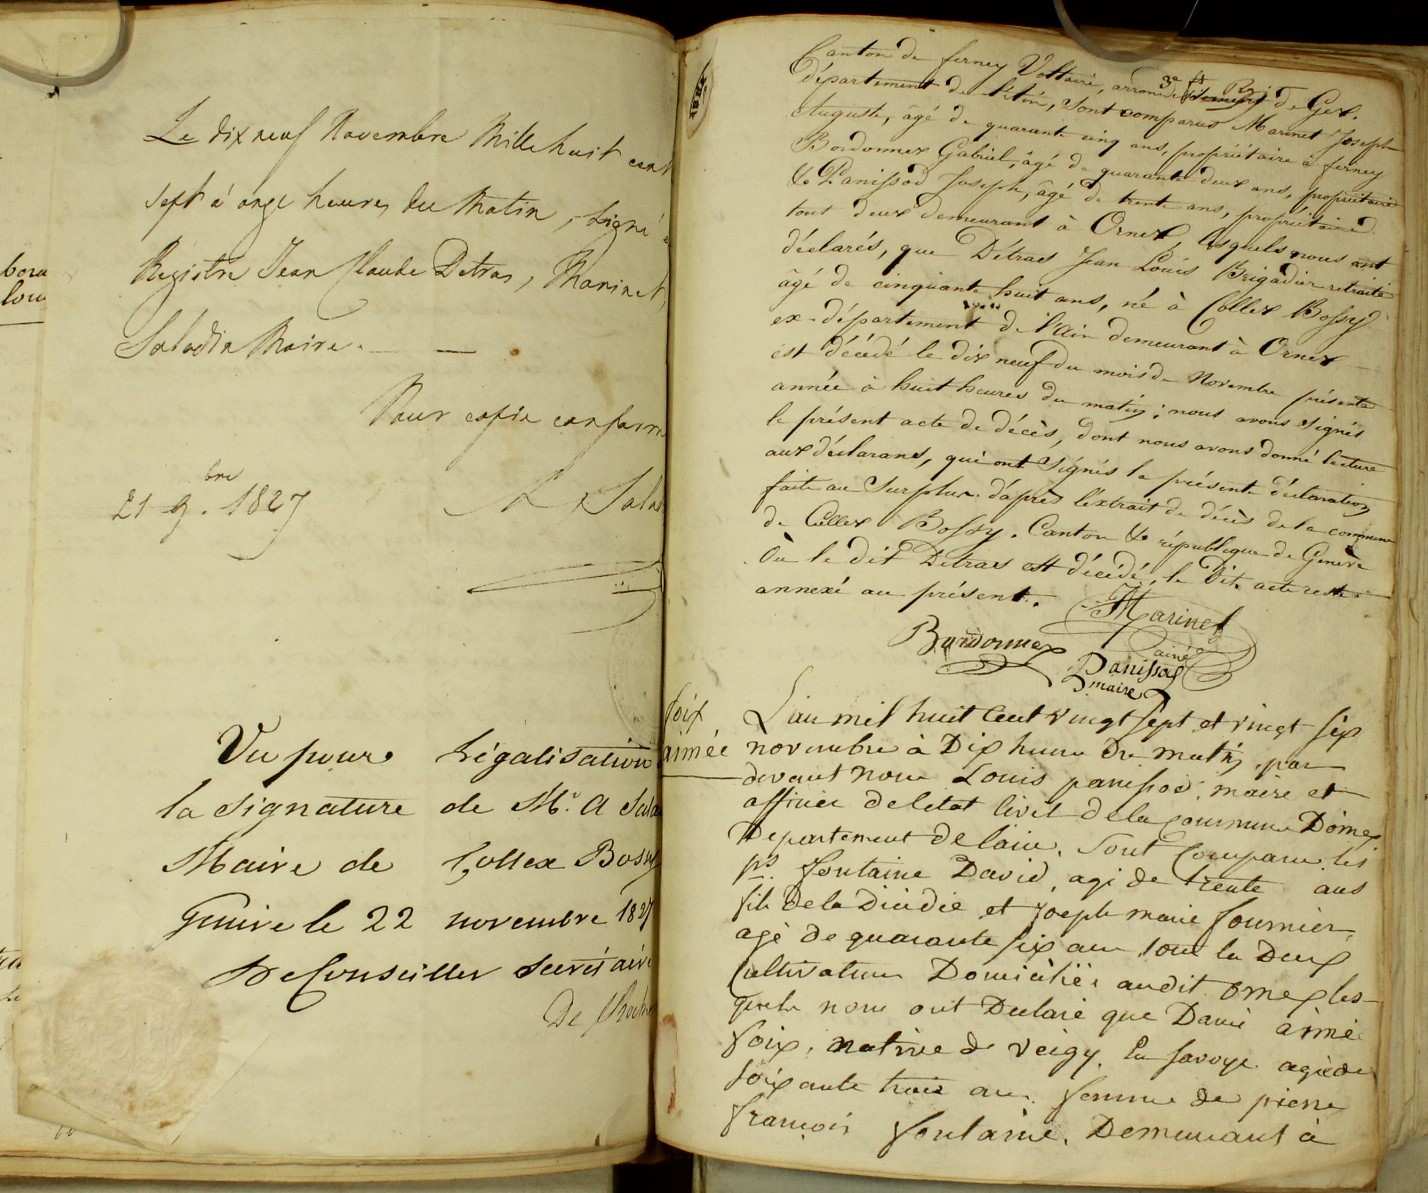 Le dix neuf Novembre Mille huit cent
sept à onze heures du Matin, Signé au
Registre Jean Claude Detras, Marinet,
Saladin Maire.
Pour copie conforme
21 9.bre 1827
A Sala
Vu pour Légalisation
la signature de Mr. A Sala
Maire de Collex Bossy
Genève le 22 novembre 1827
Le Conseiller Secrétaire
De
Canton de ferney Voltaire, arrondissement de Gex.
3e
département de l'Ain, sont comparus Marinet Joseph
Auguste, âgé de quarante cinq ans, propriétaire à ferney
Bordonnex Gabriel, âgé de quarante deux ans, propriétaire
& Panissod Joseph, âgé de trente ans, propriétaire
tout deux demeurant à Ornex, lesquels nous ont
déclarés, que Détraes Jean Louis Brigadier retraité
âgé de cinquante huit ans, né à Collex Bossy
ex-département de l'Ain demeurant à Ornex
est décédé le dix neuf du mois de Novembre présente
année à huit heures du matin; nous avons signés
le présent acte de décès, dont nous avons donné lecture
aux déclarans, qui ont signés la présente déclaration
faite au surplus d'après l'extrait de décès de la commune
de Collex Bossy. Canton & république de Genève
Où le dit Détraes est décédé, le dit acte reste
annexé au présent.
Marinet
ainé
Bordonnex
Panissod
maire
foix
aimée
L'an mil huit Cent vingt sept et vingt six
novembre à Dix heure du matin, par
devant nous Louis panissod, maire et
officier de letat Civil de la Commune Dornex
Departement de lain. Sont Comparu les
ps. fontaine David, agé de trente ans
fils de la Décédée et joseph marie fournier
agé de quarante six ans tous les Deux
Cultivateurs Domiciliés audit ornex les-
quels nous ont Declaré que Damé aimé
foix, native de veigy. En Savoye. agée de
soixante trois ans. femme de pierre
françois fontaine. Demeurant à